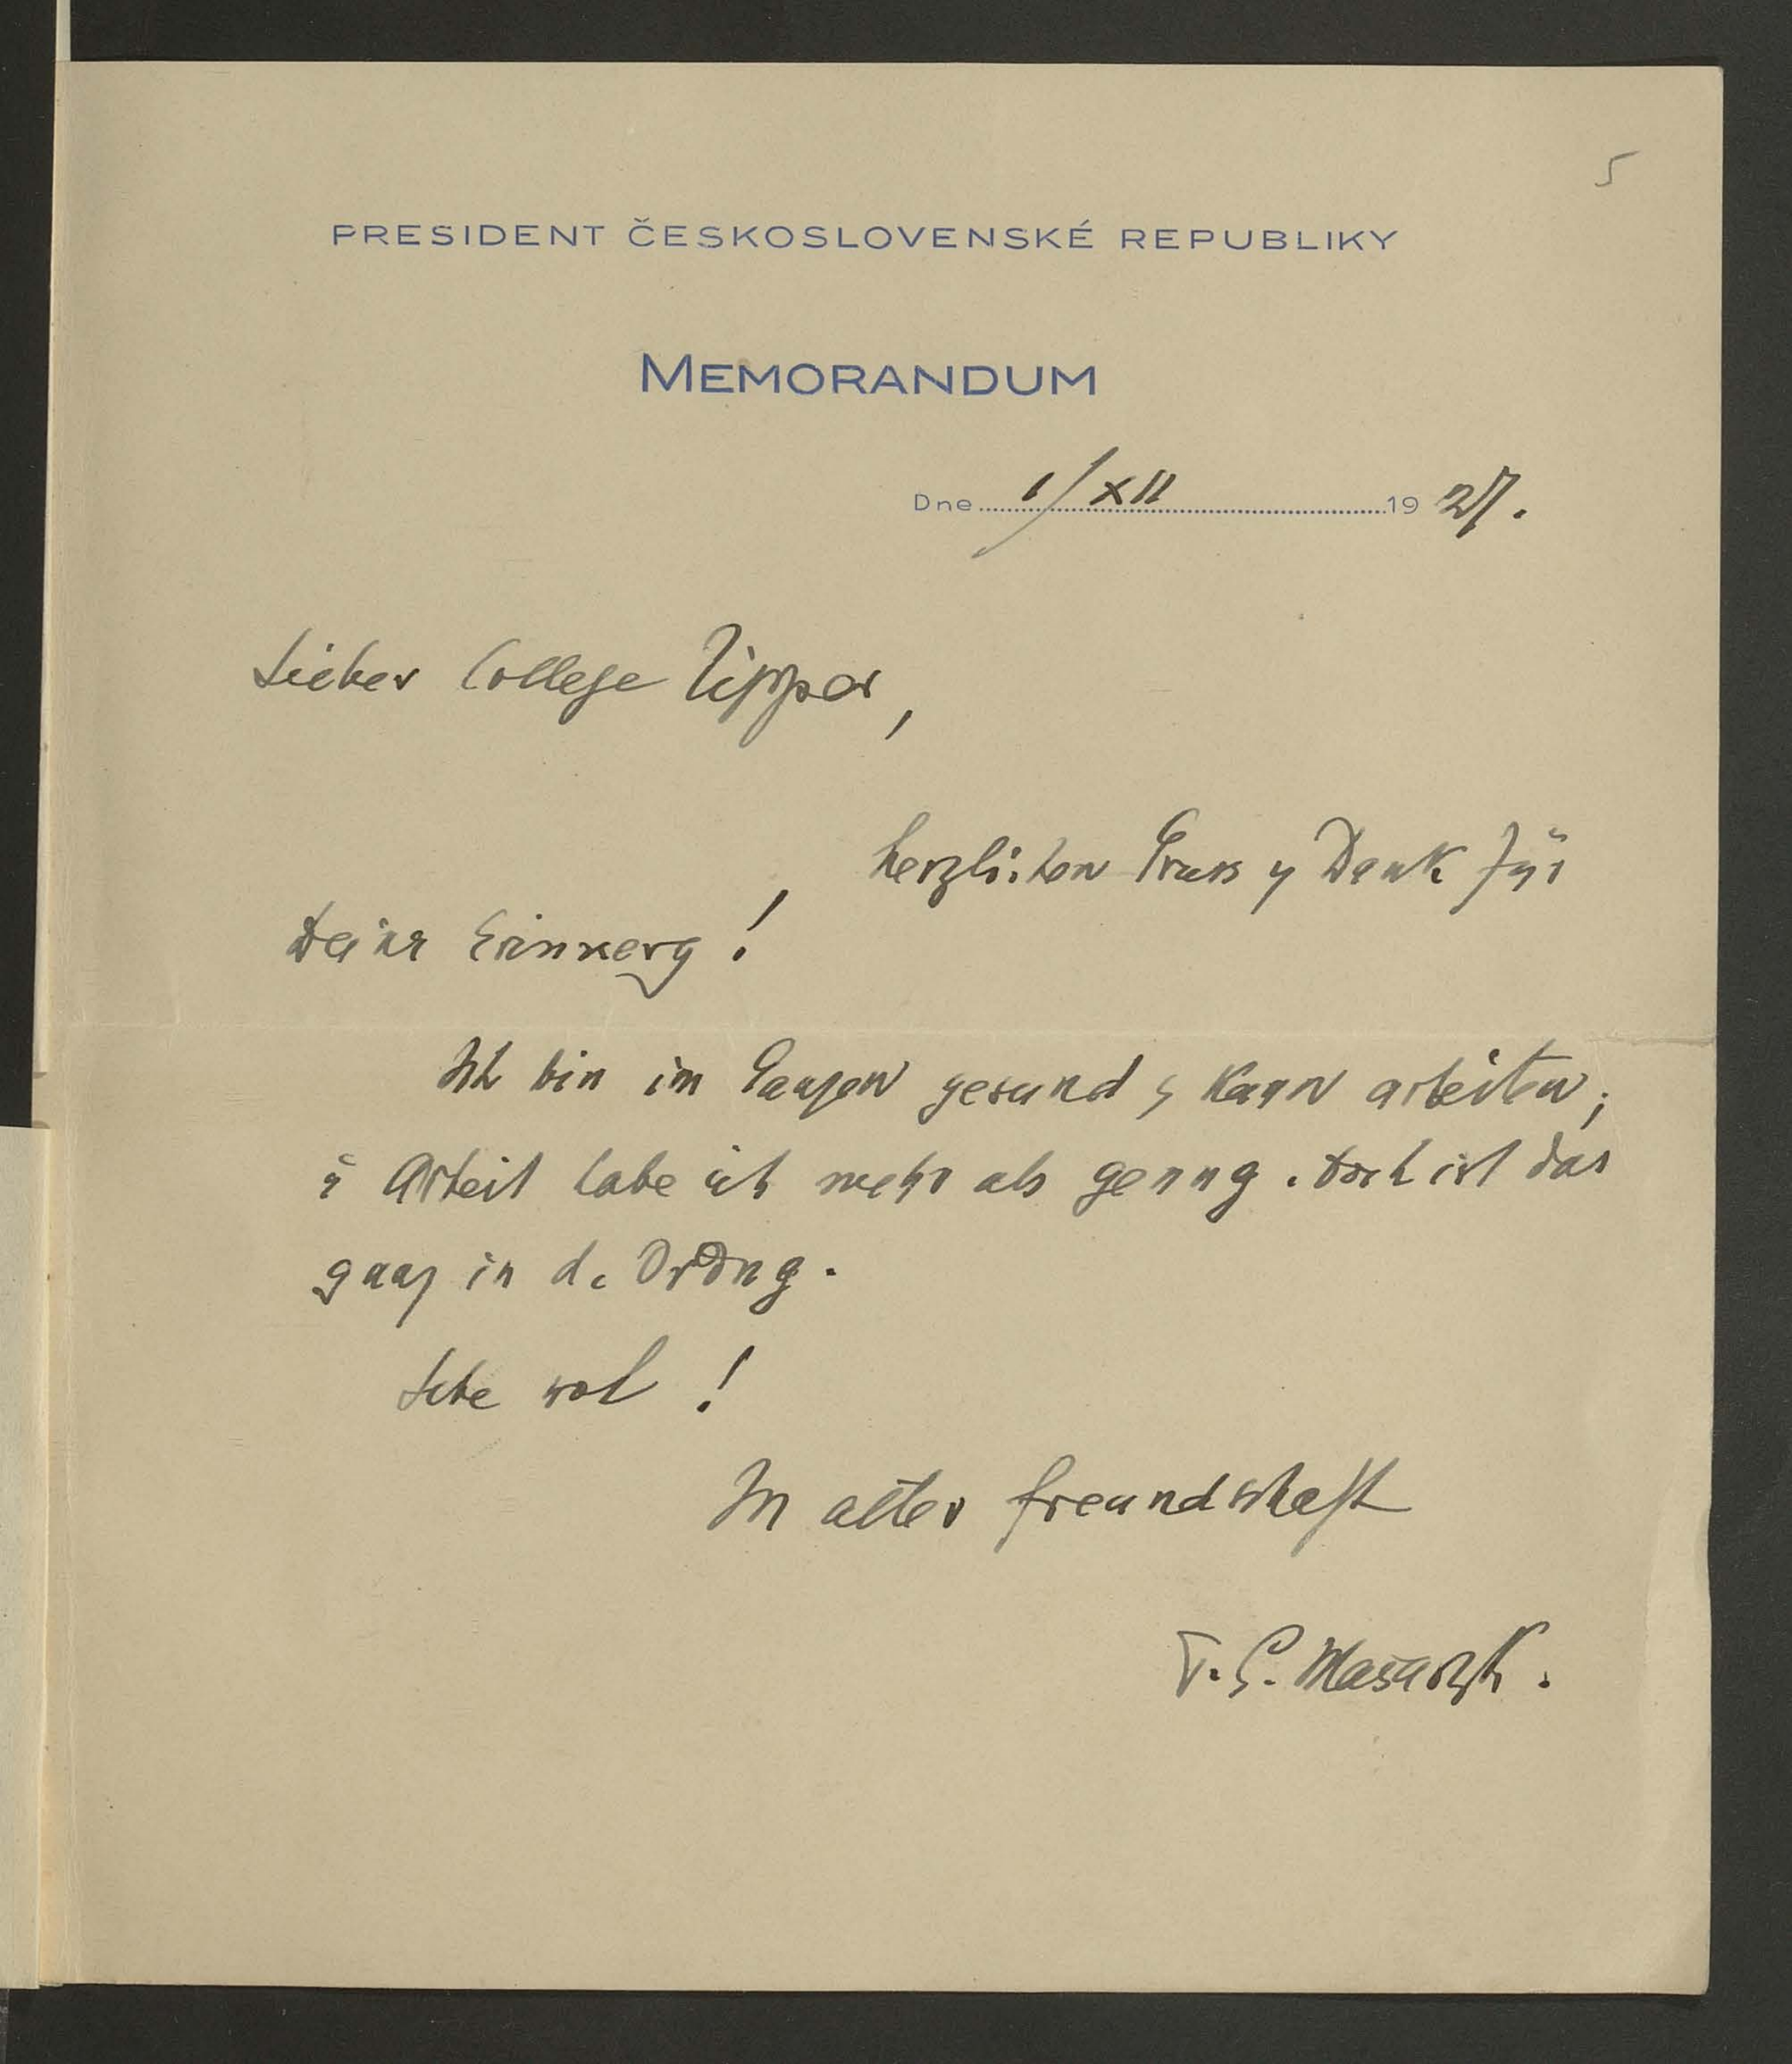 5
PRESIDENT ČESKOSLOVENSKÉ REPUBLIKY
MEMORANDUM
Dne 1/XII 1927.
Lieber College Zipper,
herzlichen Gruss u Dank für
Deine Erinnerg!
Ich bin im Ganzen gesund u kann arbeiten;
u Arbeit habe ich mehr als genug. Doch ist das
ganz in d. Ordng.
Lebe wol!
In alter Freundschaft
T. G. Masaryk.